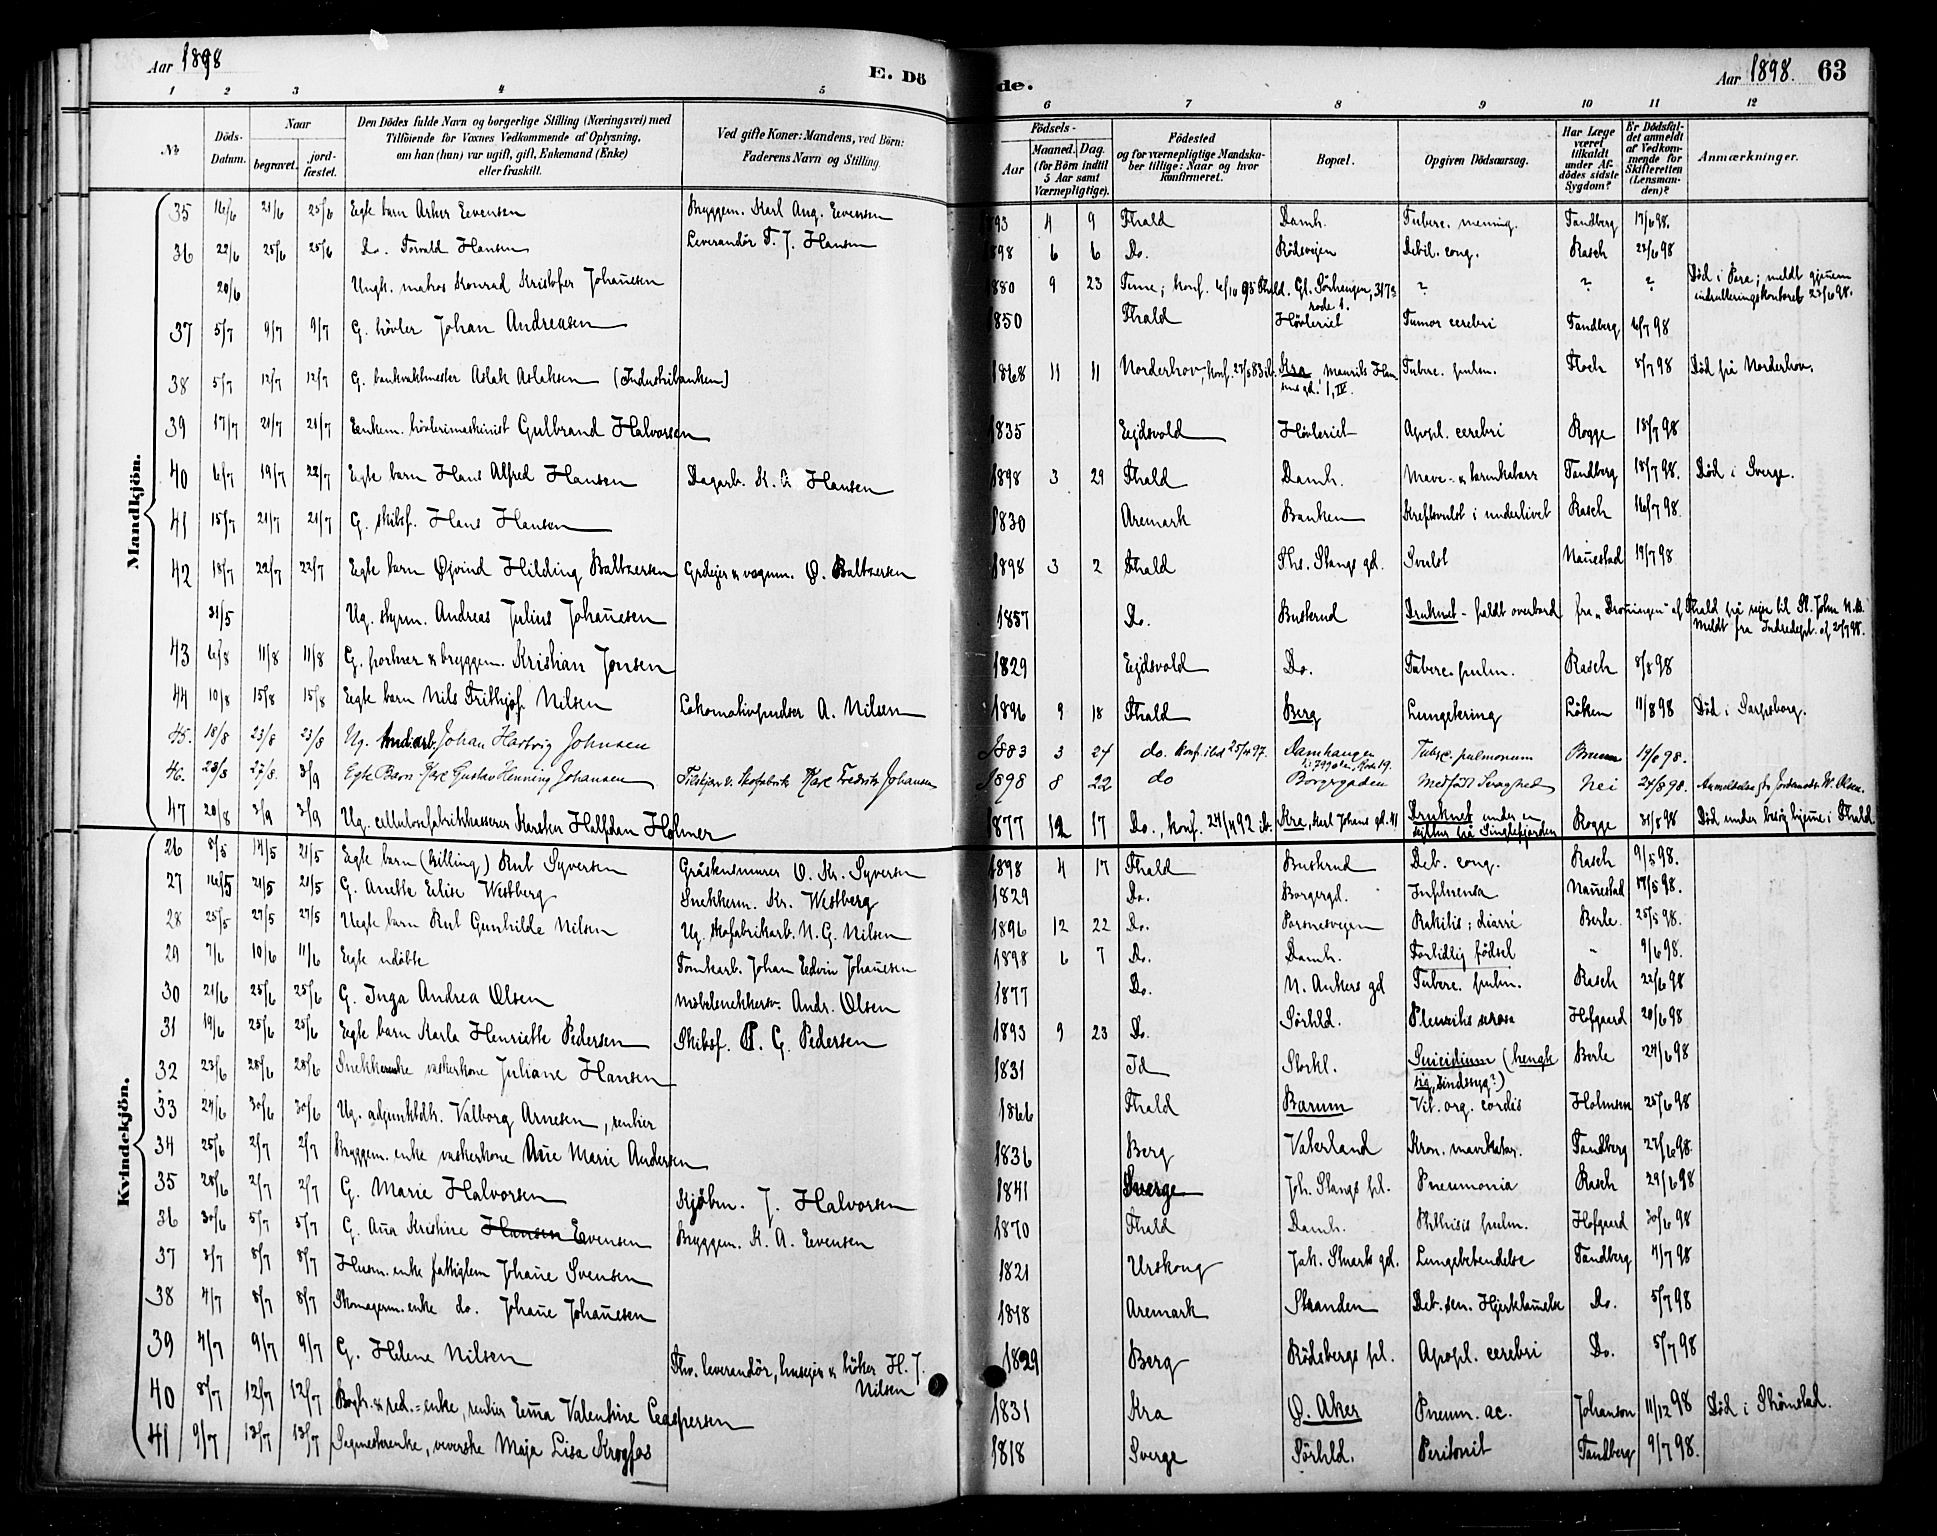 Aar 1898
E. Dö
de.
Aar 1898. 63
1 2 3 4 5 6 7 8 9 10 11 12
No
Döds-Datum.
Naar
begravet.
jord-fæstet.
Den Dödes fulde Navn og borgerlige Stilling (Næringsvei) med
Tilföiende for Voxnes Vedkommende af Oplysning,
om han (hun) var ugift, gift, Enkemand (Enke)
eller fraskilt.
Ved gifte Koner: Mandens, ved Börn:
Faderens Navn og Stilling.
Födsels-
Aar
Maaned. Dag.
(for Börn indtil
5 Aar samt
Værnepligtige).
Födested
og for værnepligtige Mandska-
ber tillige: Naar og hvor
konfirmeret.
Bopæl.
Opgiven Dödsaarsag.
Har Læge
været
tilkaldt
under Af-
dödes sidste
Sygdom?
Er Dödsfal-
det anmeldt
af Vedkom-
mende for
Skifteretten
(Lensman-
den)?
Anmærkninger.
Mandkjön.
35 16/6 21/6 25/6 Egte barn Asker Evensen Bryggem. Karl Aug. Evensen 1893 4 9 Fhald Damh. Tuberc. mening. Tandberg 17/6 98.
36 22/6 25/6 25/6 Do. Torvald Hansen Leverandör T. J. Hansen 1898 6 6 Do. Rödsvejen Debil. cong. Rasch 22/6 98
20/6 Ungk. matros Konrad Kristofer Johanesen 1880 9 23 Tune; konf. 6/10 95 Fhald. Gl. Sörhengen, 3173 rode 1. ? ? ? Död i Pera; meldt gjenem
indrulleringskontoret 23/6 98.
37 5/7 9/7 9/7 G. hövler Johan Andreasen 1850 Fhald Hövleriet Tumor cerebri Tandberg 6/7 98
38 5/7 12/7 12/7 G. bankvaktmester Aslak Aslaksen (Industribanken) 1868 11 11 Norderhov, konf. 27/5 83 ib. Kra Maurits Han-
sens gd. 1, IV. Tuberc. pulm. Floch 8/7 98 Död på Norderhov.
39 17/7 21/7 21/7 Enkem. hövlerimaskinist Gulbrand Halvorsen 1835 Eidsvold Hövleriet Apopl. cerebri Rogge 18/7 98
40 6/7 19/7 28/7 Egte barn Hans Alfred Hansen Dagarb. K. A Hansen 1898 3 29 Fhald Damh. Mave- & tarmkatarr Tandberg 18/7 98. Död i Sverge.
41 15/7 21/7 21/7 G. skibsf. Hans Hansen 1830 Aremark Banken Kreftsvulst i underlivet Rasch 16/7 98.
42 18/7 22/7 22/7 Egte barn Øjvind Hilding Baltzersen Grdejer & vognm. O. Baltzersen 1898 3 2 Fhald Ths. Stangs gd. Svulst Nanestad 19/7 98
31/5 Ug. styrm. Andreas Julius Johanesen 1857 Do. Buskrud Druknet - faldt overbord fra „Dronningen" af Fhald på rejse til St. John N.B.
Meldt fra Indredept. af 20/7 98.
43 6/8 11/8 11/8 G. portner & bryggem. Kristian Jonsen 1829 Eidsvold Do. Tuberc. pulm. Rasch 8/8 98
44 10/8 15/8 15/8 Egte barn Nils Fritkjof Nilsen Lokomotivpudser A. Nilsen 1896 9 18 Fhald Berg Lungetering Löken 11/8 98 Död i Sarpsborg.
45. 18/8 23/8 23/8 Ug. Johan Hartvig Johnsen 1883 3 24 do. konf. ibid 25/4 97. Damhaugen Tuberc. pulmonum Bruun 19/8 98.
46. 23/8 27/8. 3/9 Egte Barn Karl Gustav Henning Johansen Tilskjær v. Skofabrik Karl Fredrik Johansen 1898 8 22 do Borgergaden Medfödt Svaghed Nei 24/8 98. Anmeldelse fra Jordmoder W. Olsen.
47 20/8 3/9 3/9 Ug. cellulosefabrikkasserer Karsten Halfdan Holmer 1877 12 17 Do., konf. 24/4 92 ib. Kra, Karl Johans gd. 41 Druknet under en
seiltur på Singlefjorden Rogge 31/8 98 Död under besög hjeme i Fhald
Kvindekjön.
26 8/5 14/5 21/5 Egte barn (tvilling) Rut Syversen Gråstensmurer O. Kr. Syversen 1898 4 17 Fhald Buskrud Deb. cong. Rasch 9/5 98.
27 16/5 21/5 21/5 G. Anette Elise Westberg Snekkerm. Kr. Westberg 1829 Do. Borgergd. Influensa Nanestad 17/5 98.
28 25/5 27/5 27/5 Uegte barn Rut Gunhilde Nilsen Ug. skofabrikarb. N. G. Nilsen 1896 12 22 Do. Porsnesvejen Rakitis; diarré Berle 25/5 98.
29 7/6 10/6 11/6 Egte udöbt Tomtarb. Johan Edvin Johanesen 1898 6 7 Do. Damh. Fortidlig födsel " 9/6 98.
30 21/6 25/6 25/6 G. Inga Andrea Olsen Möbelsnekkersv. Andr. Olsen 1877 Do. N. Ankers gd Tuberc. pulm. Rasch 22/6 98
31 19/6 25/6 25/6 Egte barn Karla Henriette Pedersen Skibsf. P. G. Pedersen 1893 9 23 Do. Sörhld. Pleuritis serosa Hofgaard 20/6 98
32 23/6 28/6 28/6 Snekkerenke vaskerkone Juliane Hansen 1831 Id Storkl. Suicidium (hengte
sig, sindssyg?) Berle 24/6 98
33 24/6 30/6 30/6 Ug. adjunktdtr. Valborg Arnesen, rentier 1866 Fhald Barum Vit. org. cordis Holmsen 25/6 98
34 25/6 2/7 2/7 Bryggem. enke vaskerkone Ane Marie Andersen 1836 Berg Vaterland Kron. mavekatar. Tandberg 27/6 98.
35 28/6 2/7 2/7 G. Marie Halvorsen Kjöbm. J. Halvorsen 1841 Sverge Joh. Stangs pl. Pneumonia Rasch 29/6 98
36 30/6 5/7 5/7 G. Ana Kristine Hansen Evensen Bryggem. K. A. Evensen 1870 Fhald Damh. Phthisis pulm. Hofgaard 30/6 98
37 3/7 8/7 8/7 Husm. enke fattiglem Johane Svensen 1821 Urskoug Jak. Stuarts gd. Lungebetendelse Tandberg 4/7 98
38 4/7 8/7 8/7 Skomagerm. enke do. Johane Johanesen 1818 Aremark Stranden Deb. sen. Hjertelamelse Do. 5/7 98
39 4/7 9/7 9/7 G. Helene Nilsen Fhv. leverandör, husejer & höker H. J.
Nilsen 1829 Berg Rödsbergs pl. Apopl. cerebri Do. 5/7 98
40 8/7 12/7 12/7 Bogtr. & red.=enke, rentier Ema Valentine Caspersen 1831 Kra Ø. Aker Pneum. ac. Johanson 11/12 98 Död i Strömstad.
41 9/7 13/7 13/7 Segmesterenke, veverske Maja Lisa Krogfos 1818 Sverge Sörhld. Peritonit Tandberg 9/7 98.